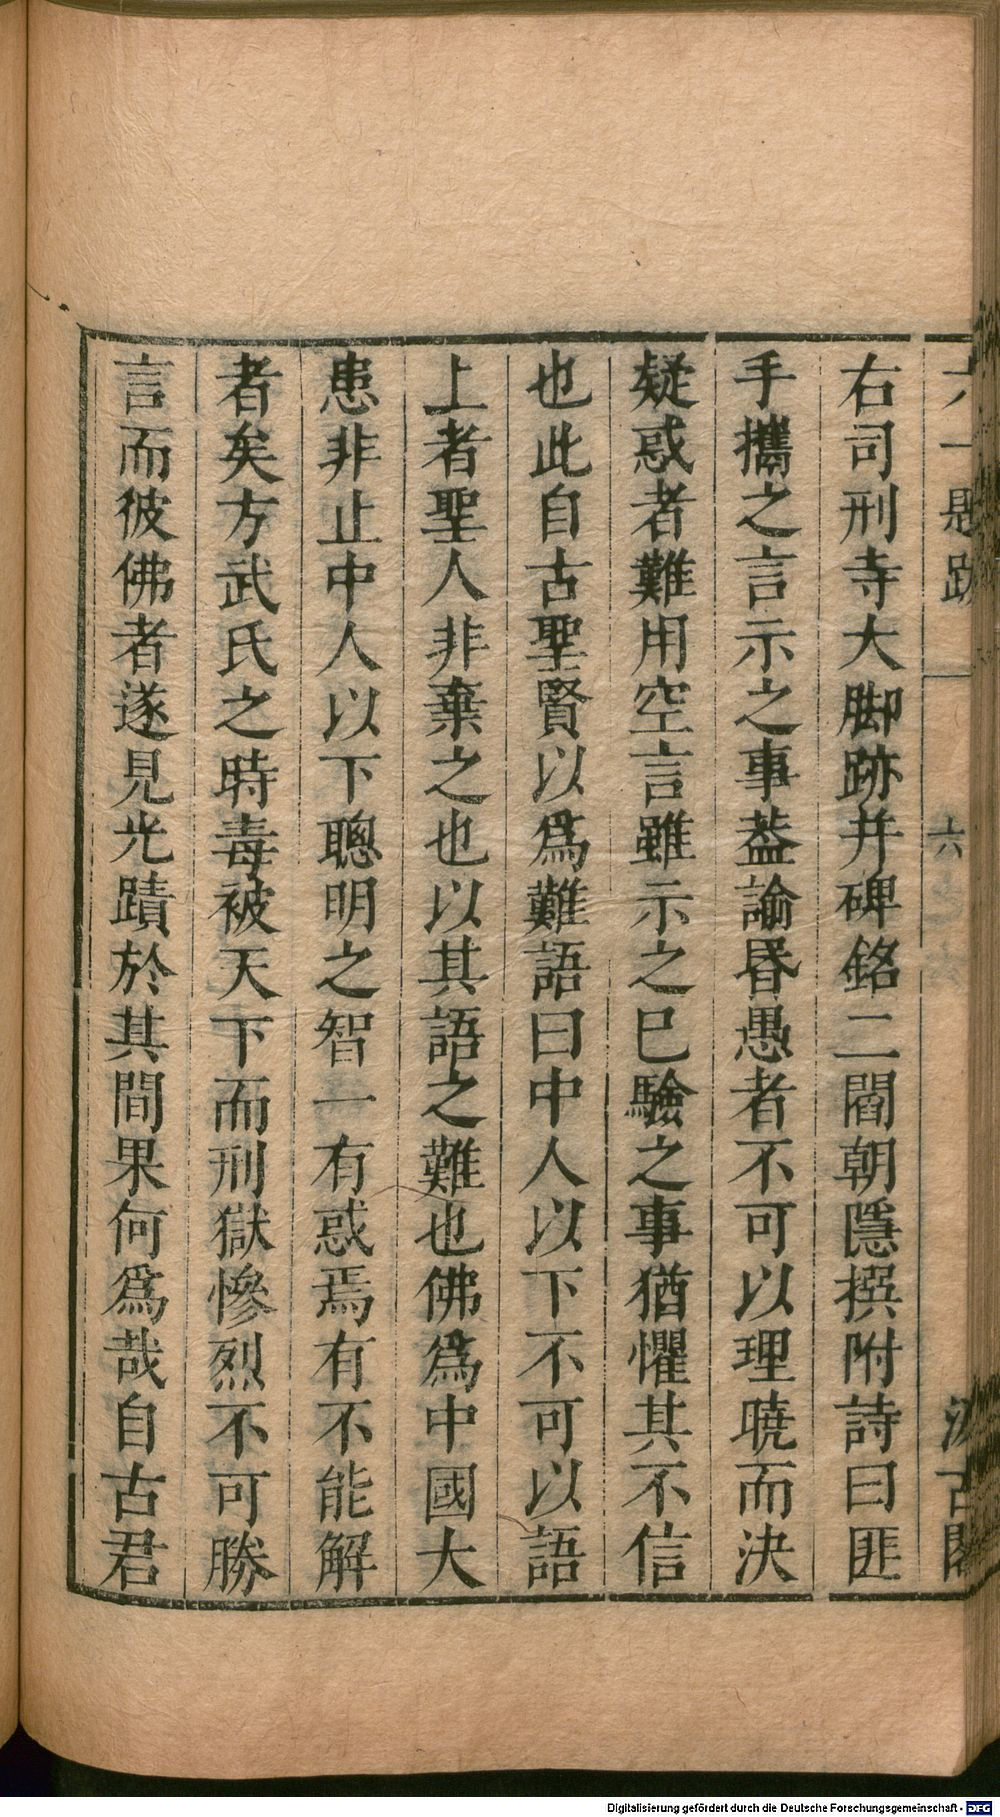 六一題跋 六 汲古閣
右司刑寺大脚跡并碑銘二閻朝隱撰附詩曰匪
手攜之言示之事葢諭昬愚者不可以理曉而決
疑惑者難用空言雖示之巳驗之事猶懼其不信
也此自古聖賢以爲難語曰中人以下不可以語
上者聖人非棄之也以其語之難也佛爲中國大
患非止中人以下聰明之智一有惑焉有不能解
者矣方武氏之時毒被天下而刑獄慘烈不可勝
言而彼佛者遂見光蹟於其間果何爲哉自古君
Digitalisierung gefördert durch die Deutsche Forschungsgemeinschaft - DFG